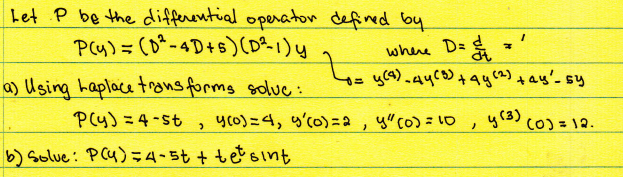 Let P be the differential operator defined by
P(y) = (D²-4D+5)(D²-1) y where D = d/dt = '
= y⁽⁴⁾ - 4y⁽³⁾ + 4y⁽²⁾ + 4y' - 5y
a) Using Laplace transforms solve :
P(y) = 4-5t , y(0)=4, y'(0)=2 , y"(0)=10 , y⁽³⁾(0)=12.
b) Solve: P(y) = 4-5t + te^t sint